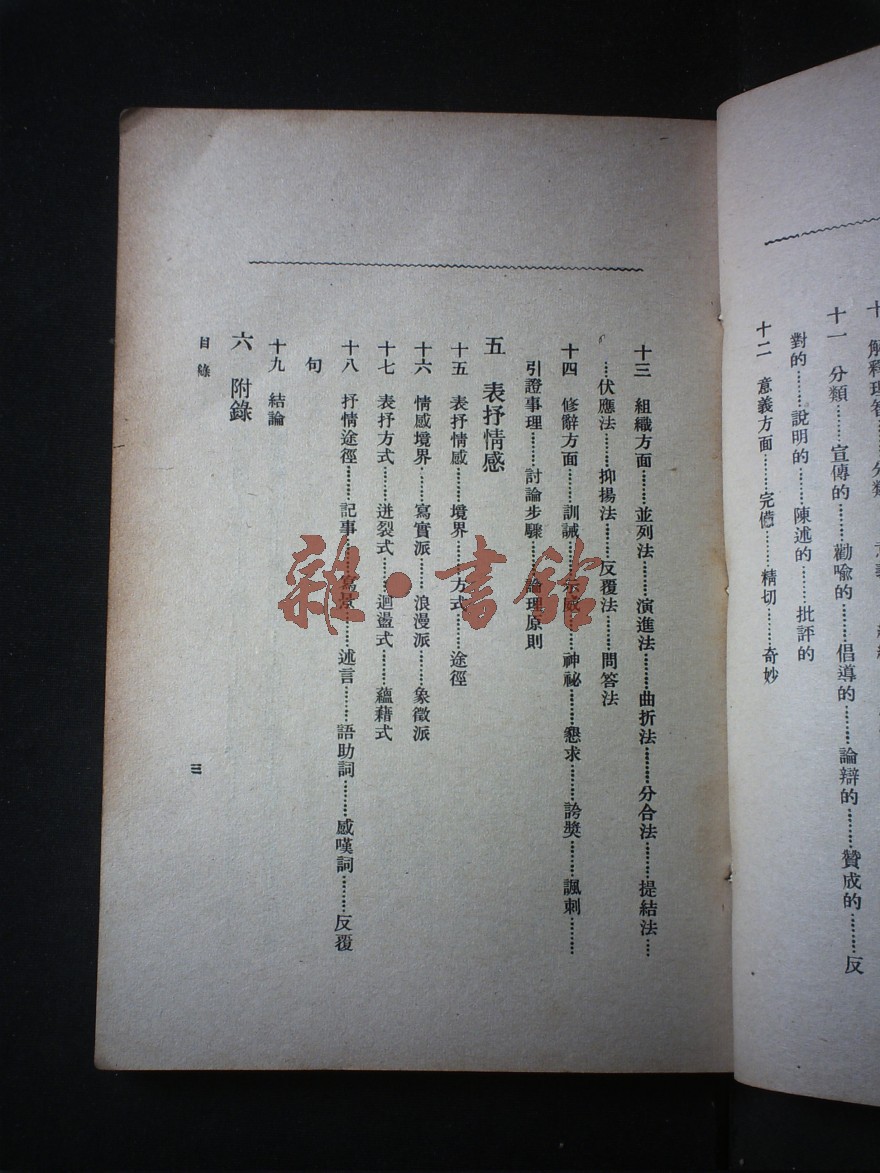 十一 分類……宣傳的……勸喩的……倡導的……論辯的……贊成的……反
對的……說明的……陳述的……批評的
十二 意義方面……完備……精切……奇妙
十三 組織方面……並列法……演進法……曲折法……分合法……提結法……
……伏應法……抑揚法……反覆法……問答法
十四 修辭方面……訓誡……示威……神祕……懇求……誇獎……諷刺……
引證事理……討論步驟……論理原則
五 表抒情感
十五 表抒情感……境界……方式……途徑
十六 情感境界……寫實派……浪漫派……象徵派
十七 表抒方式……迸裂式……迴盪式……蘊藉式
十八 抒情途徑……記事……寫景……述言……語助詞……感嘆詞……反覆
句
十九 結論
六 附錄
目錄
三
雜·書館